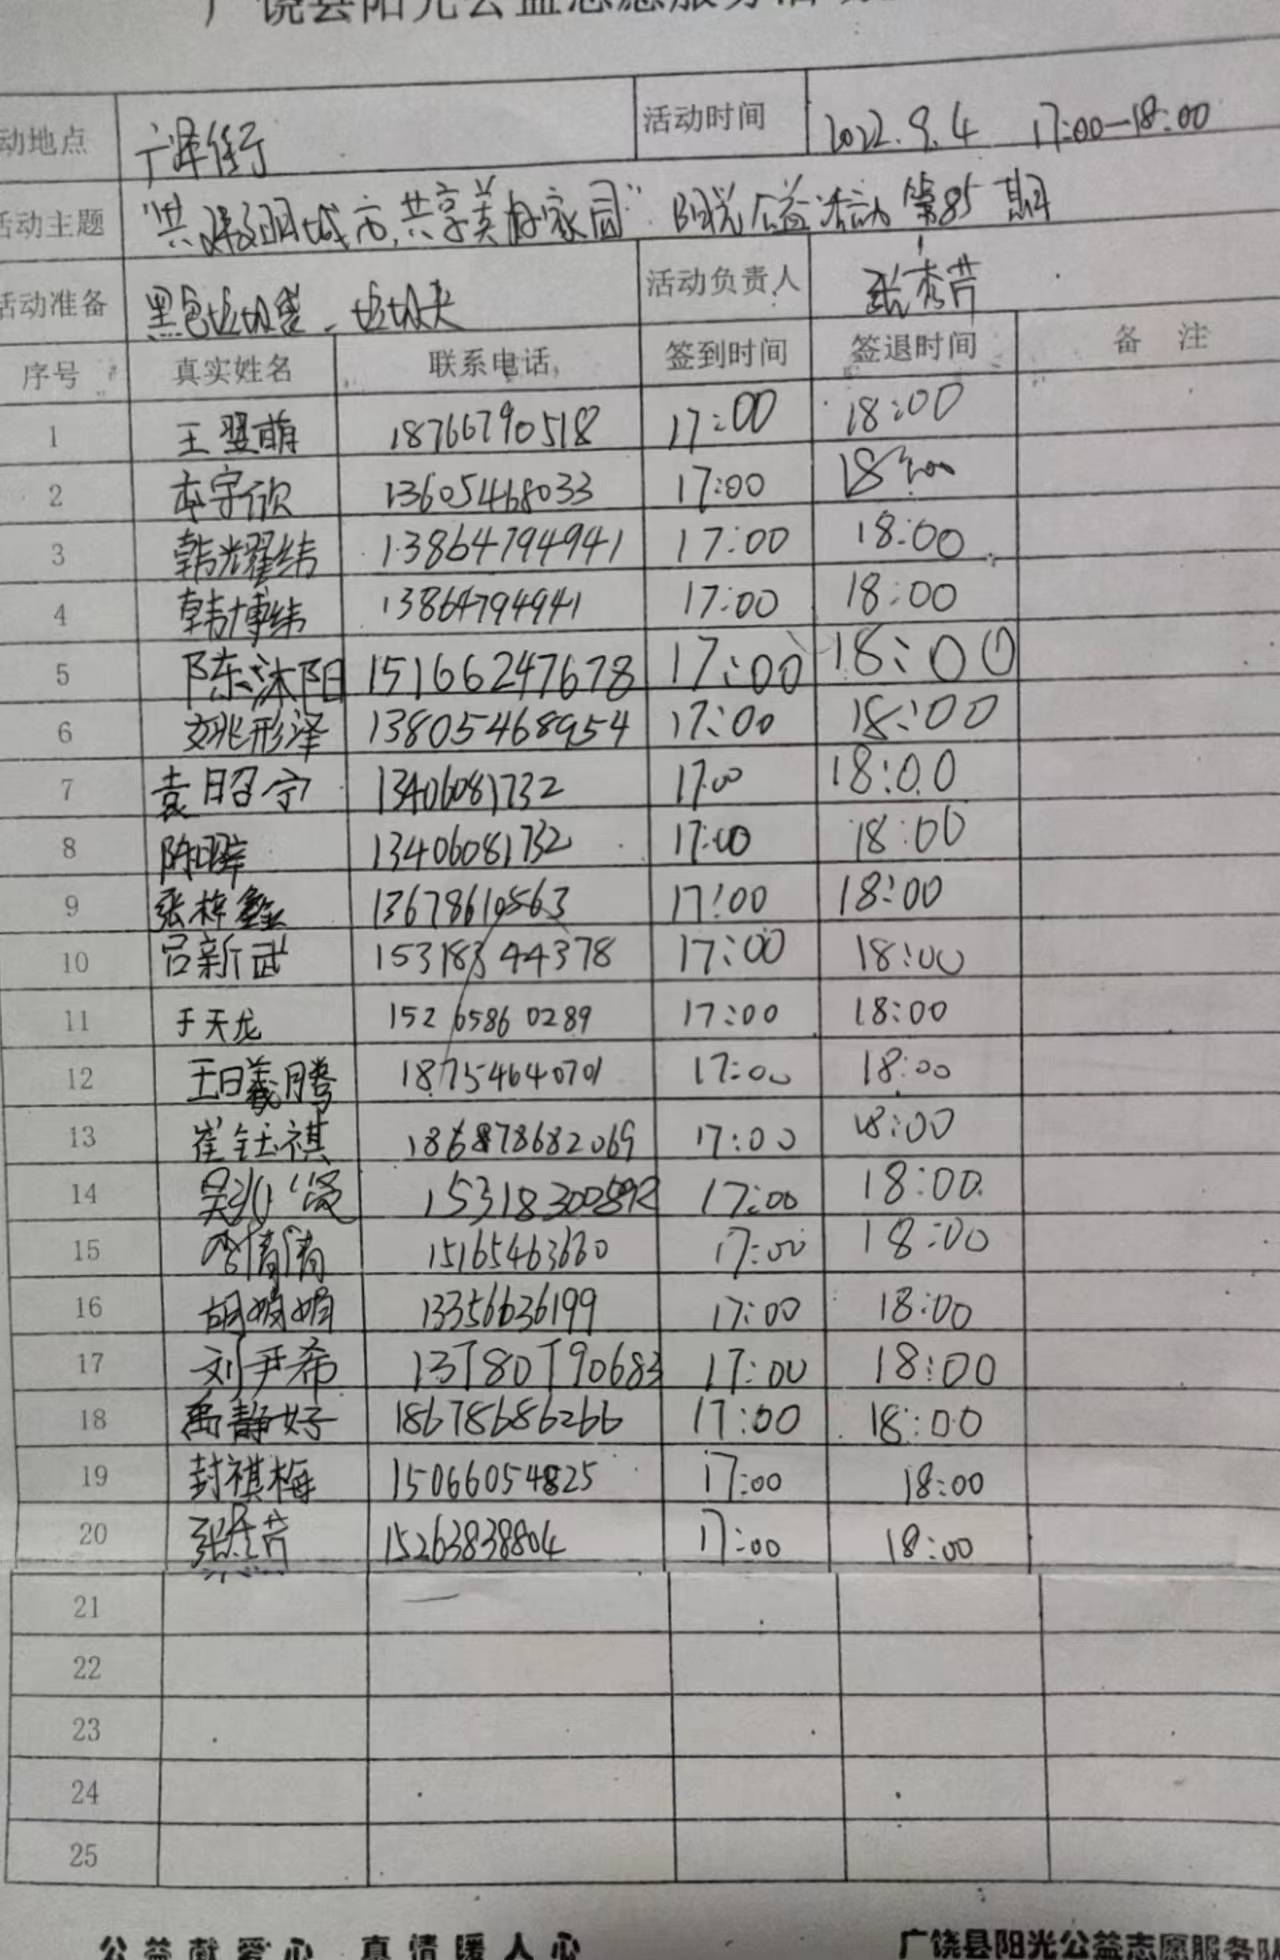 广饶县阳光公益志愿服务活动
动地点 广泽街 活动时间 2022.9.4 17:00—18:00
活动主题 "共建文明城市,共享美好家园" 阳光公益活动 第85期
活动准备 黑色垃圾袋、垃圾夹 活动负责人 张秀芹
序号 真实姓名 联系电话 签到时间 签退时间 备 注
1 王翌萌 18766790518 17:00 18:00
2 宇欣 13605468033 17:00 18:00
3 韩耀纬 13864794941 17:00 18:00
4 韩博纬 13864794941 17:00 18:00
5 陈沐阳 15166247678 17:00 18:00
6 姚彤泽 13805468954 17:00 18:00
7 袁昭宁 13406081732 17:00 18:00
8 陈 13406081732 17:00 18:00
9 张梓鑫 13678610563 17:00 18:00
10 吕新武 15318344378 17:00 18:00
11 于天龙 152 6586 0289 17:00 18:00
12 王曦腾 18754640701 17:00 18:00
13 崔钰祺 186878682069 17:00 18:00
14 吴 17:00 18:00
15 李倩倩 15165463660 17:00 18:00
16 胡娟娟 13356636199 17:00 18:00
17 刘尹希 13780790683 17:00 18:00
18 禹静好 18678686266 17:00 18:00
19 封祺梅 15066054825 17:00 18:00
20 张秀芹 15263838804 17:00 18:00
21
22
23
24
25
公益献爱心 真情暖人心 广饶县阳光公益志愿服务队